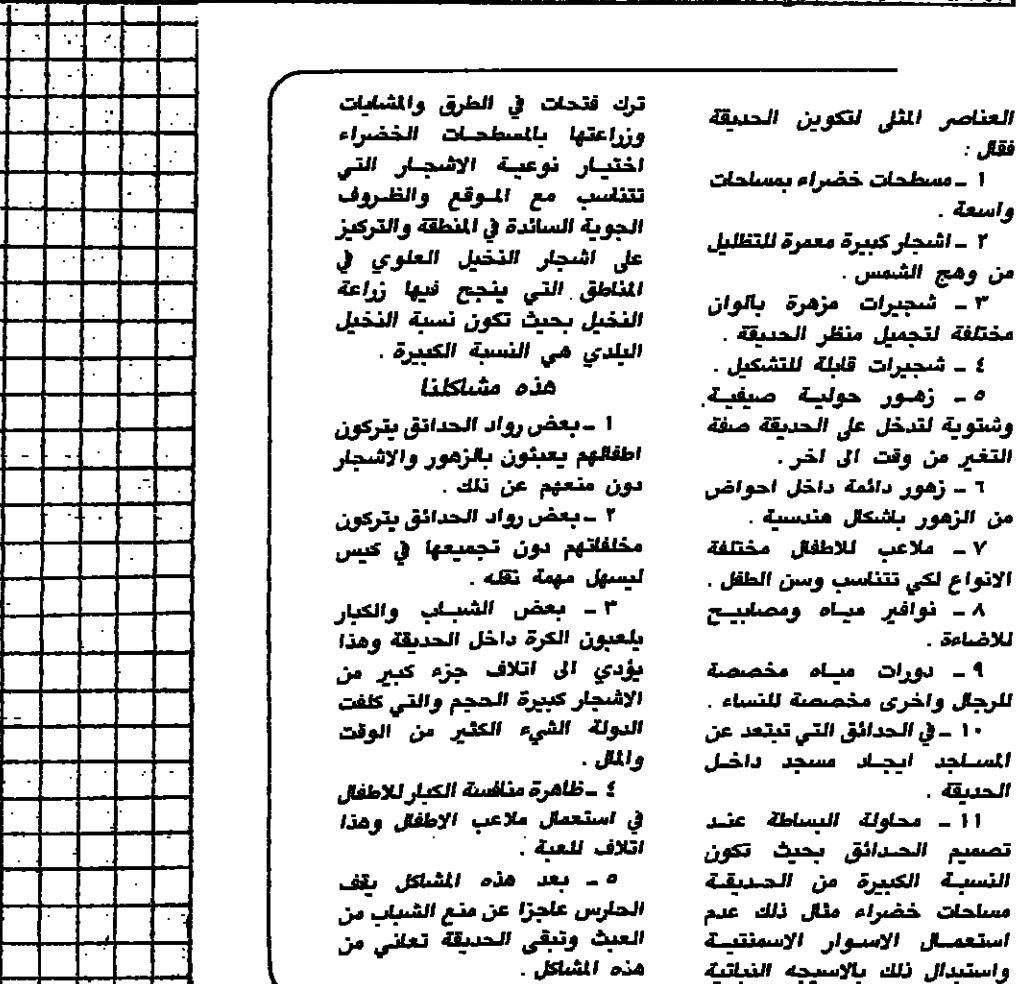 العناصر المثلى لتكوين الحديقة
فقال :
١ ـ مسطحات خضراء بمساحات
واسعة .
٢ ـ اشجار كبيرة معمرة للتظليل
من وهج الشمس .
٣ ـ شجيرات مزهرة بالوان
مختلفة لتجميل منظر الحديقة .
٤ ـ شجيرات قابلة للتشكيل .
٥ ـ زهور حولية صيفية
وشتوية لتدخل على الحديقة صفة
التغير من وقت الى اخر .
٦ ـ زهور دائمة داخل احواض
من الزهور باشكال هندسية .
٧ ـ ملاعب للاطفال مختلفة
الانواع لكي تتناسب وسن الطفل .
٨ ـ نوافير مياه ومصابيح
للاضاءة .
٩ ـ دورات مياه مخصصة
للرجال واخرى مخصصة للنساء .
١٠ ـ في الحدائق التي تبتعد عن
المساجد ايجاد مسجد داخل
الحديقة .
١١ ـ محاولة البساطة عند
تصميم الحدائق بحيث تكون
النسبة الكبيرة من الحديقة
مساحات خضراء مثال ذلك عدم
استعمال الاسوار الاسمنتية
واستبدال ذلك بالاسيجه النباتية
ترك فتحات في الطرق والمشايات
وزراعتها بالمسطحات الخضراء
اختيار نوعية الاشجار التي
تتناسب مع الموقع والظروف
الجوية السائدة في المنطقة والتركيز
على اشجار النخيل العلوي في
المناطق التي ينجح فيها زراعة
النخيل بحيث تكون نسبة النخيل
البلدي هي النسبة الكبيرة .
هذه مشاكلنا
١ ـ بعض رواد الحدائق يتركون
اطفالهم يعبثون بالزهور والاشجار
دون منعهم عن ذلك .
٢ ـ بعض رواد الحدائق يتركون
مخلفاتهم دون تجميعها في كيس
ليسهل مهمة نقله .
٣ ـ بعض الشباب والكبار
يلعبون الكرة داخل الحديقة وهذا
يؤدي الى اتلاف جزء كبير من
الاشجار كبيرة الحجم والتي كلفت
الدولة الشيء الكثير من الوقت
والمال .
٤ ـ ظاهرة منافسة الكبار للاطفال
في استعمال ملاعب الاطفال وهذا
اتلاف للعبة .
٥ ـ بعد هذه المشاكل يقف
الحارس عاجزا عن منع الشباب من
العبث وتبقى الحديقة تعاني من
هذه المشاكل .